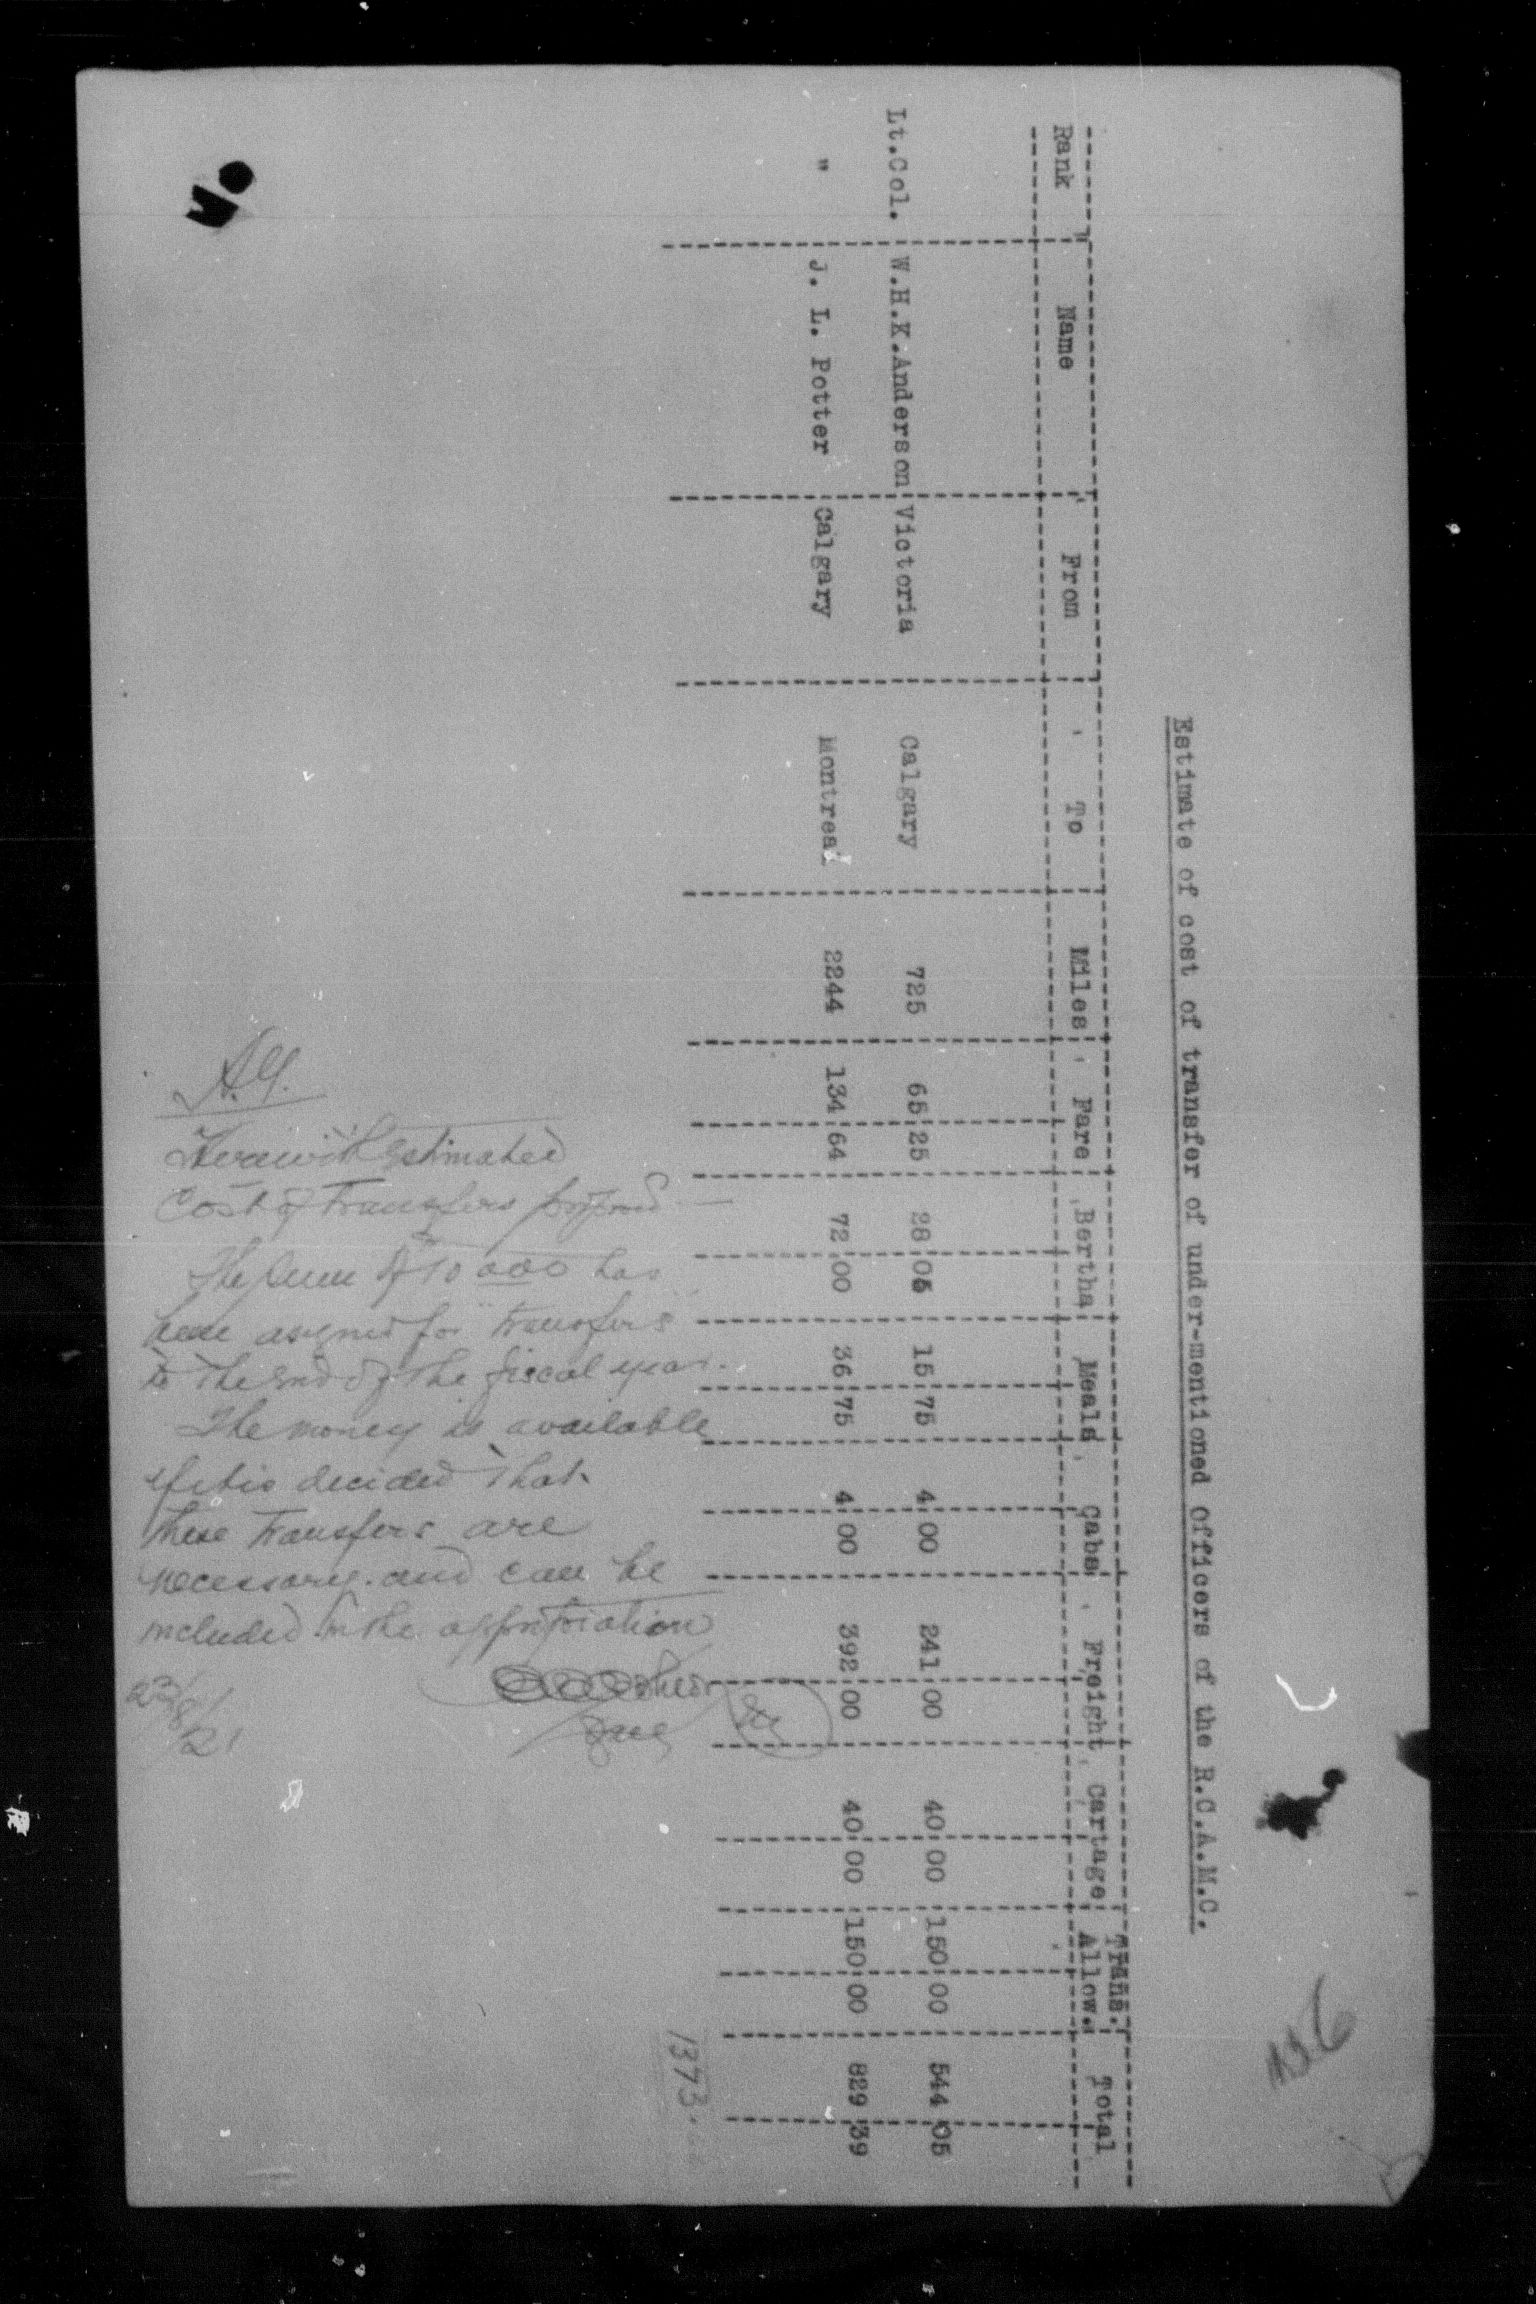 136
Estimate of cost of transfer of under-mentioned Officers of the R.C.A.M.C.
Rank ' Name ' From ' To Miles ' Fare ' Berths ' Meals ' Cabs ' Freight ' Cartage Trans. Allow. Total
Lt.Col. W.H.K.Anderson Victoria Calgary 725 65 25 28 05 15 75 4 00 241 00 40 00 150 00 544 05
" J. L. Potter Calgary Montreal 2244 134 64 72 00 36 75 4 00 392 00 40 00 150 00 829 39
1373.
A.G.
Herewith Estimated
Cost of Transfers proposed —
The sum of 10 000 has
been assigned for "Transfers"
to the End of the fiscal year.
The money is available
if it is decided that
these Transfers are
necessary. and can be
included in the appropriation
23/8/21